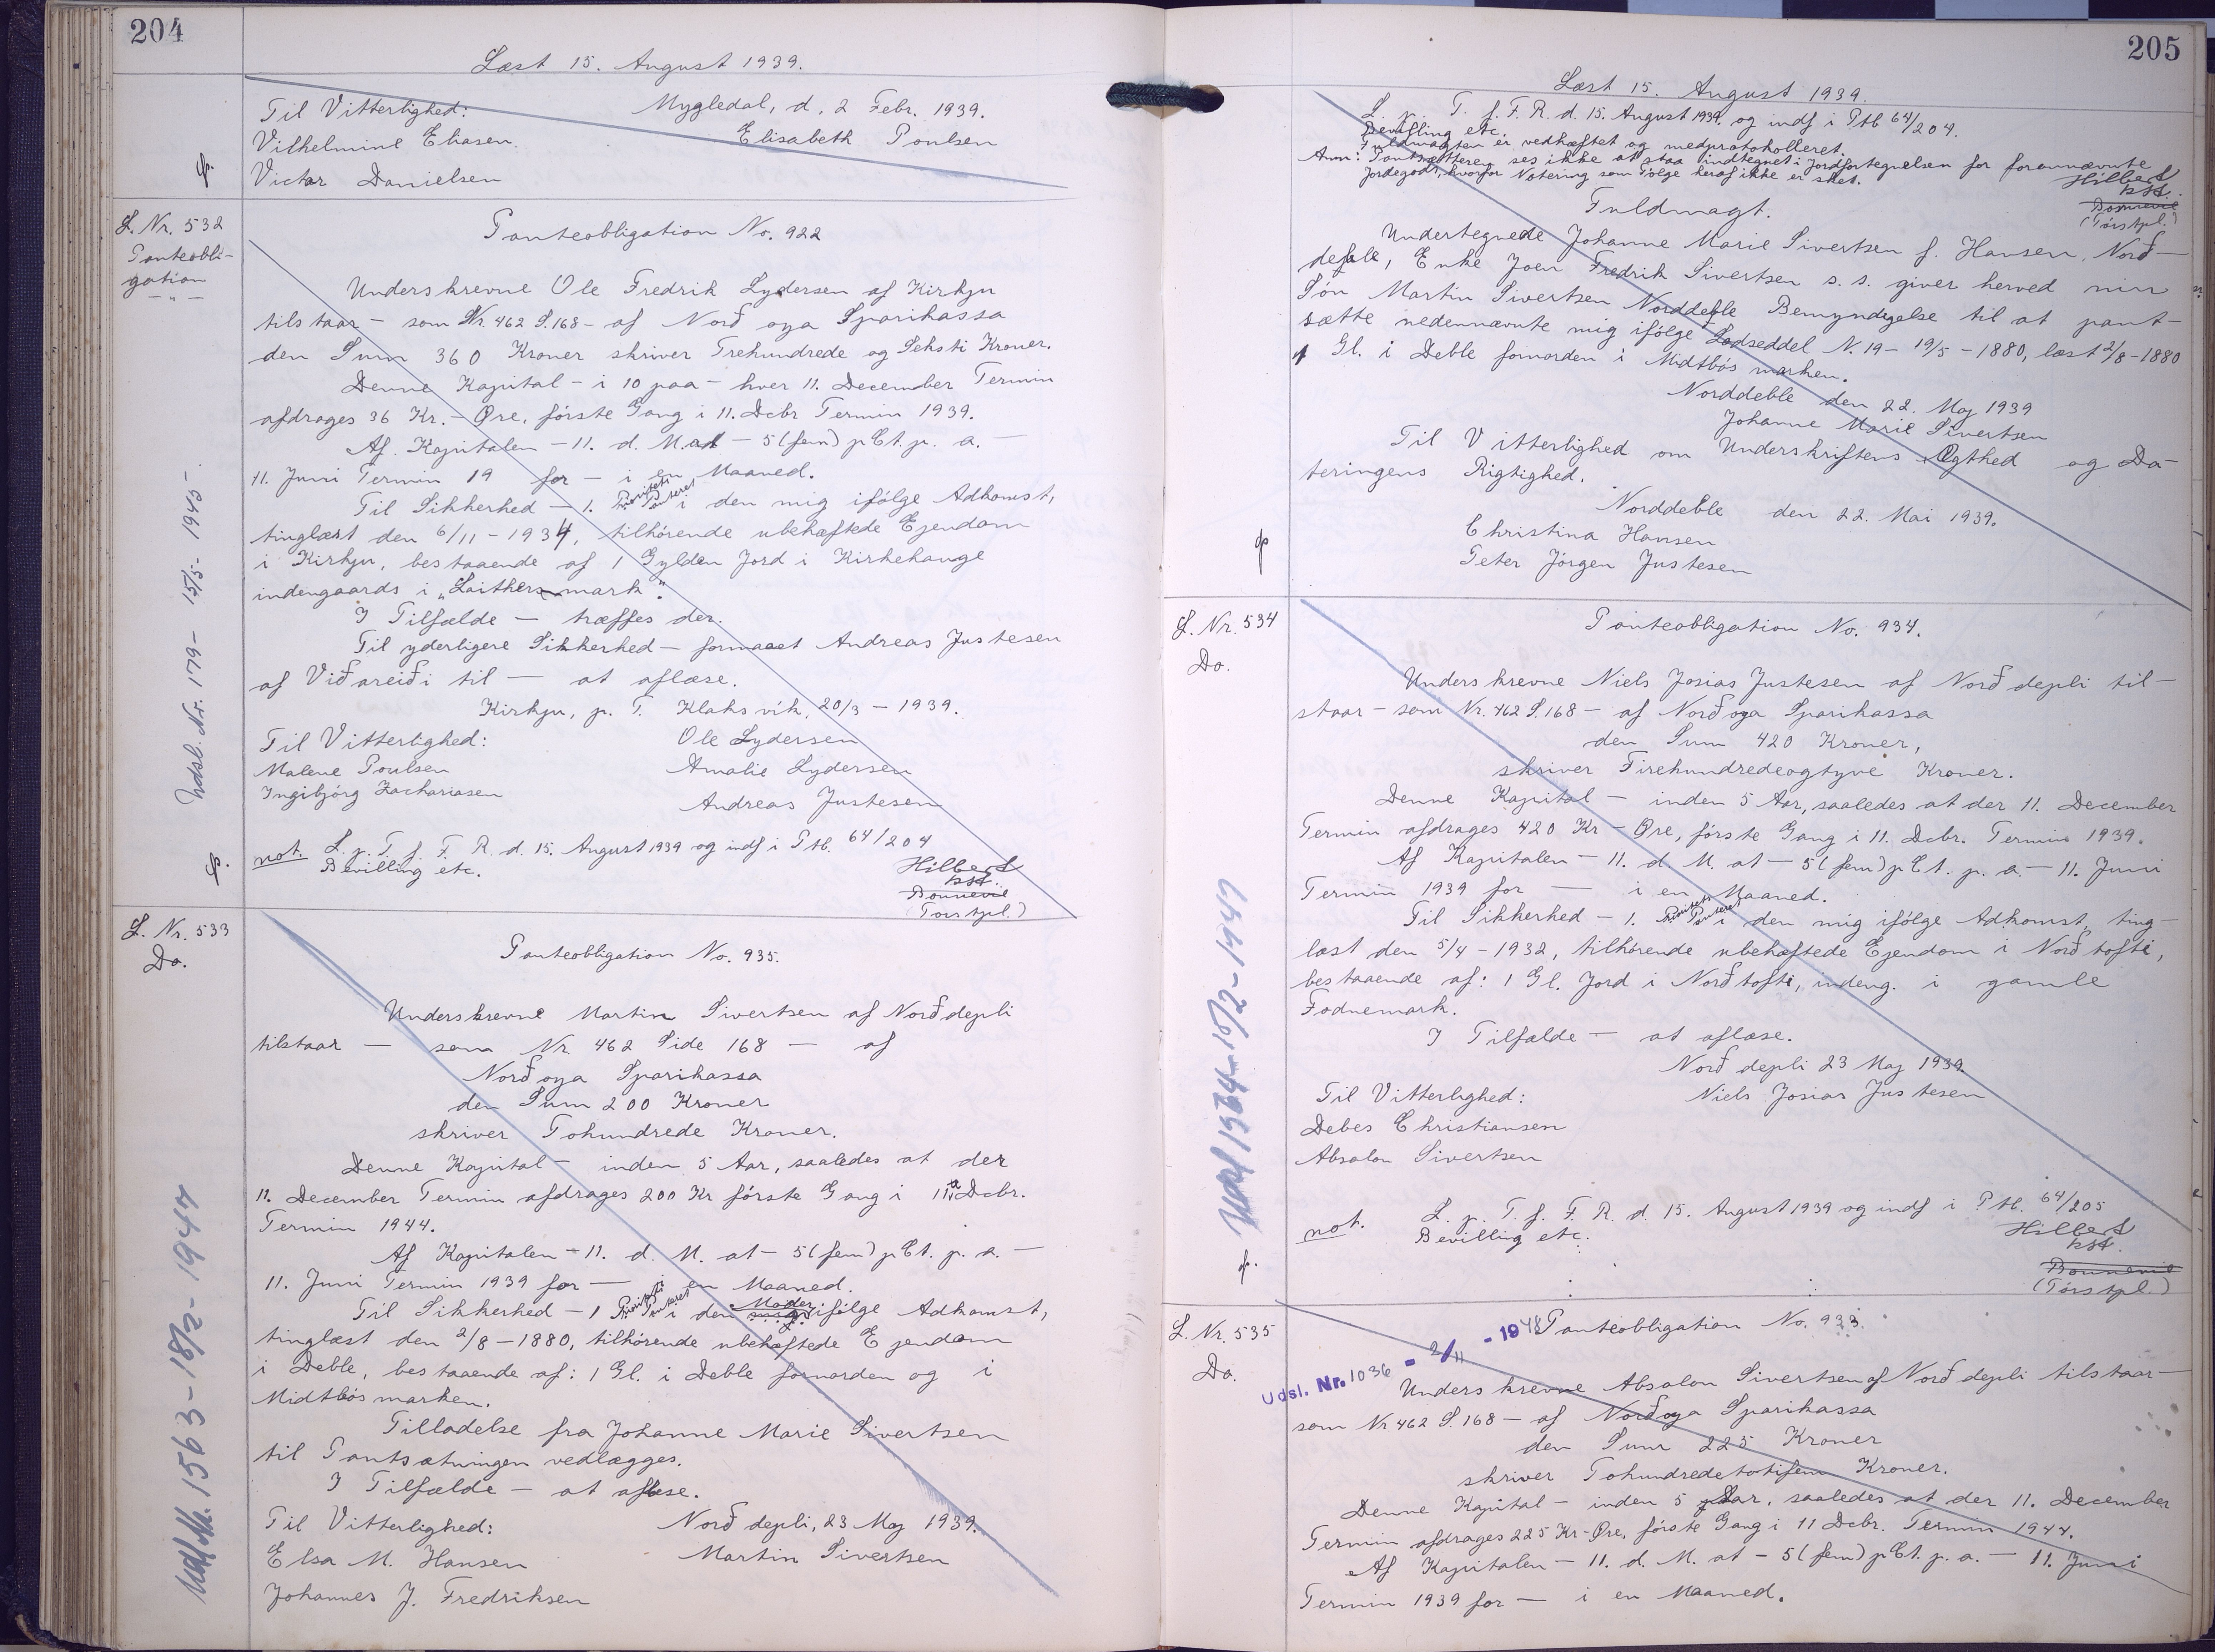 204
Læst 15. August 1939.
Til Vitterlighed:
Mygledal, d. 2 Febr. 1939.
Vilhelmine Eliasen
Elisabeth Poulsen
Victor Danielsen
L. Nr. 532
Panteobli-
gation
Panteobligation No. 922
Underskrevne Ole Fredrik Lydersen af Kirkju
tilstaar - som Nr. 462 S. 168 - af Norðoya Sparikassa
den Sum 360 Kroner skriver Trehundrede og Seksti Kroner.
Denne Kapital - i 10 paa - hver 11. December Termin
afdrages 36 Kr. - Øre, første Gang i 11. Dcbr Termin 1939.
Af Kapitalen - 11. d. M. at - 5 (fem) pCt. p. a. -
11. Juni Termin 19 for - i en Maaned.
Til Sikkerhed - 1. Prioritets Panteret i den mig ifølge Adkomst,
tinglæst den 6/11 - 1934, tilhørende ubehæftede Ejendom
i Kirkju, bestaaende af 1 Gylden Jord i Kirkehauge
indengaards i „Laithersmark".
I Tilfælde - træffes der.
Til yderligere Sikkerhed - formaaet Andreas Justesen
af Viðareiði til - at aflæse.
Kirkju, p. T. Klaksvík, 20/3 - 1939.
Til Vitterlighed:
Ole Lydersen
Malene Poulsen
Amalie Lydersen
Ingibjörg Zachariasen
Andreas Justesen
not. L. p. T. f. F. R. d. 15. August 1939 og indf i Ptb. 64/204
Bevilling etc.
Hilbert
kst.
Bonnevie
(Torstpl.)
Udsl. Nr. 179 - 15/5 - 1945 -
L. Nr. 533
Do.
Panteobligation No. 935.
Underskrevne Martin Sivertsen af Norðdepli
tilstaar - som Nr. 462 Side 168 - af
Norðoya Sparikassa
den Sum 200 Kroner
skriver Tohundrede Kroner.
Denne Kapital - inden 5 Aar, saaledes at der
11. December Termin afdrages 200 Kr første Gang i 11. Dcbr.
Termin 1944.
Af Kapitalen - 11. d. M. at - 5 (fem) pCt. p. a. -
11. Juni Termin 1939 for - i en Maaned.
Til Sikkerhed - 1 Prioritets Panteret i den Moder ifølge Adkomst,
tinglæst den 2/8 - 1880, tilhørende ubehæftede Ejendom
i Deble, bestaaende af: 1 Gl. i Deble fornorden og i
Midtbøsmarken.
Tilladelse fra Johanne Marie Sivertsen
til Pantsætningen vedlægges.
I Tilfælde - at aflæse.
Til Vitterlighed:
Norð depli, 23 Maj 1939.
Elsa M. Hansen
Martin Sivertsen
Johannes J. Fredriksen
Udsl. Nr. 1563 - 18/2 - 1947
205
Læst 15. August 1939.
L. p. T. f. F. R. d. 15. August 1939. og indf i Ptb 64/204.
Bevilling etc.
Fuldmagten er vedhæftet og medprotokolleret.
Anm: Pantsætteren ses ikke at staa indtegnet i Jordfortegnelsen for forannævnte
Jordegods, hvorfor Notering som Følge heraf ikke er sket.
Hilbert
kst.
Bonnevie
(Torstpl.)
Fuldmagt.
Undertegnede Johanne Marie Sivertsen f. Hansen, Norð-
deble, Enke Joen Fredrik Sivertsen s. s. giver herved min
Søn Martin Sivertsen Norddeble Bemyndigelse til at pant-
sætte nedennævnte mig ifølge Lodseddel N. 19 - 19/5 - 1880, læst 2/8 - 1880
1 Gl. i Deble fornorden i Midtbøs marken.
Norddeble den 22. Maj 1939
Johanne Marie Sivertsen
Til Vitterlighed om Underskriftens Ægthed og Da-
teringens Rigtighed.
Norddeble den 22. Mai 1939.
Christina Hansen
Peter Jørgen Justesen
L. Nr. 534
Do.
Panteobligation No. 934.
Underskrevne Niels Josias Justesen af Norð depli til-
staar - som Nr. 462 S. 168 - af Norðoya Sparikassa
den Sum 420 Kroner,
skriver Firehundredeogtyve Kroner.
Denne Kapital - inden 5 Aar, saaledes at der 11. December
Termin afdrages 420 Kr - Øre, første Gang i 11. Dcbr. Termin 1939.
Af Kapitalen - 11. d. M. at - 5 (fem) pCt. p. a. - 11. Juni
Termin 1939 for - i en Maaned.
Til Sikkerhed - 1. Prioritets Panteret i den mig ifølge Adkomst, ting-
læst den 5/4 - 1932, tilhørende ubehæftede Ejendom i Norðtofti,
bestaaende af: 1 Gl. Jord i Norðtofti, indeng. i gamle
Fodnemark.
I Tilfælde - at aflæse.
Norð depli 23 Maj 1939.
Til Vitterlighed:
Niels Josias Justesen
Debes Christiansen
Absalon Sivertsen
not. L. p. T. f. F. R. d. 15. August 1939 og indf i Ptb. 64/205
Bevilling etc.
Hilbert
kst.
Bonnevie
(Torstpl.)
L. Nr. 535
Do.
Panteobligation No. 933.
Udsl. Nr. 1036 - 2/11 - 1948
Underskrevne Absalon Sivertsen af Norð depli tilstaar -
som Nr 462 S. 168 - af Norðoya Sparikassa
den Sum 225 Kroner
skriver Tohundredetotifem Kroner.
Denne Kapital - inden 5 Aar, saaledes at der 11. December
Termin afdrages 225 Kr - Øre, første Gang i 11 Dcbr. Termin 1944.
Af Kapitalen - 11. d. M. at - 5 (fem) pCt. p. a. - 11. Juni
Termin 1939 for - i en Maaned.